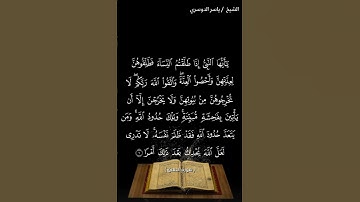 الشيخ / ياسر الدوسري
يَٰٓأَيُّهَا ٱلنَّبِىُّ إِذَا طَلَّقْتُمُ ٱلنِّسَآءَ فَطَلِّقُوهُنَّ
لِعِدَّتِهِنَّ وَأَحْصُوا۟ ٱلْعِدَّةَ ۖ وَٱتَّقُوا۟ ٱللَّهَ رَبَّكُمْ ۖ لَا
تُخْرِجُوهُنَّ مِنۢ بُيُوتِهِنَّ وَلَا يَخْرُجْنَ إِلَّآ أَن
يَأْتِينَ بِفَٰحِشَةٍ مُّبَيِّنَةٍ ۚ وَتِلْكَ حُدُودُ ٱللَّهِ ۚ وَمَن
يَتَعَدَّ حُدُودَ ٱللَّهِ فَقَدْ ظَلَمَ نَفْسَهُۥ ۚ لَا تَدْرِى
لَعَلَّ ٱللَّهَ يُحْدِثُ بَعْدَ ذَٰلِكَ أَمْرًا ١